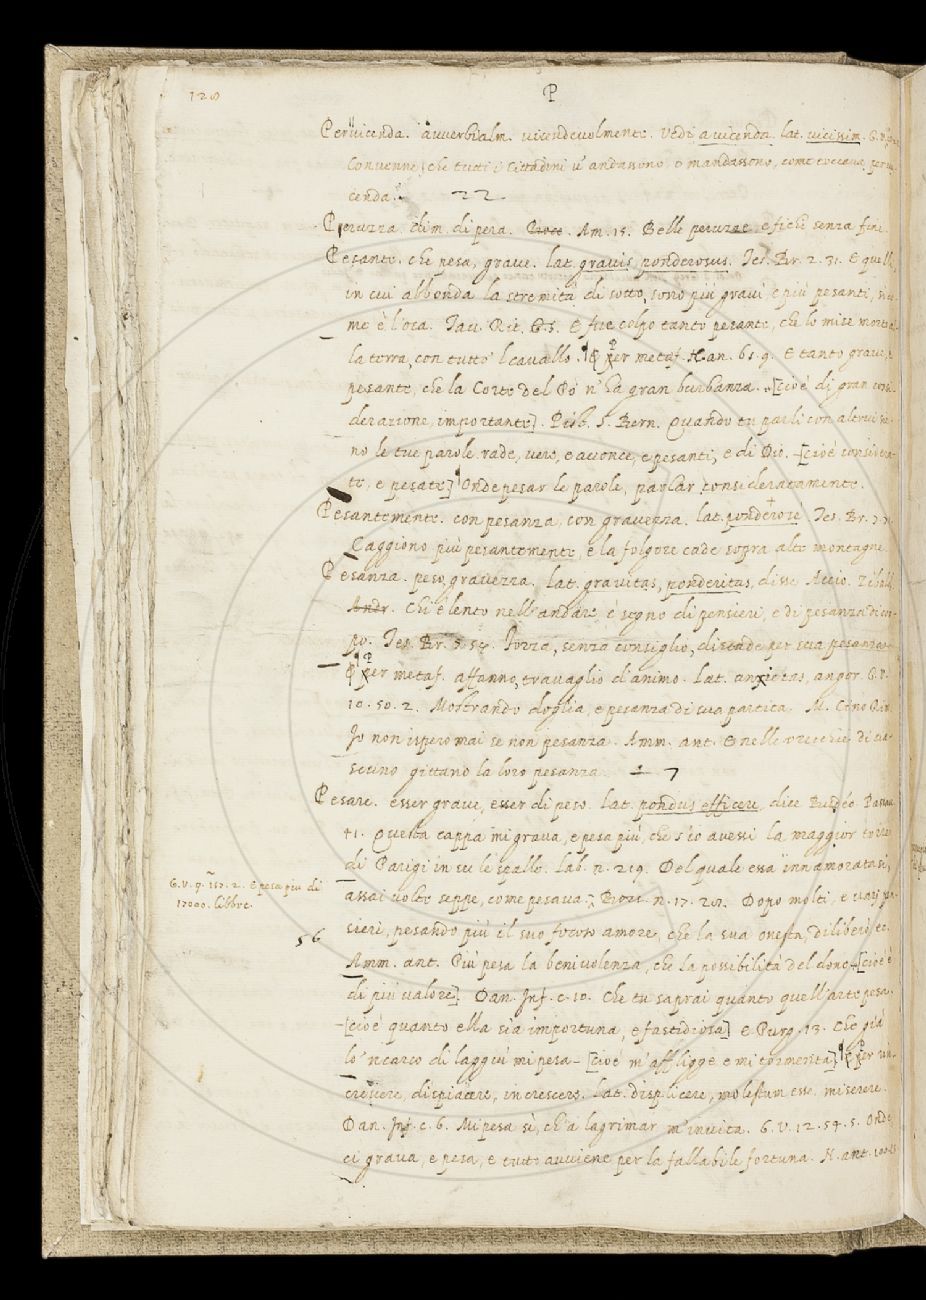 P
Per vicenda. avverbialm. vicendevolmente. Vedi a vicenda. lat. vicissim.
Convenne, che tutti i Cittadini v' andassono, o mandassono, come toccava, per vi-
cenda. 22
Peruzza. dim. di pera. Am. 15. Belle peruzze e fichi senza fine.
Pesante. che pesa, grave. lat. gravis, ponderosus. Tes. Br. 2. 31. E quelli,
in cui abbonda la stremità di sotto, sono più gravi, e più pesanti,
me è l'oca. Tav. Rit. E fue colpo tanto pesante, che lo mise
la terra, con tutto 'l cavallo. ¶ Per metaf. 61. 9. E tanto grave, e
pesante, che la Corte del Po n' ha gran burbanza. [cioè di gran consi-
derazione, importante]. Pist. S. Bern. Quando tu parli con altrui sie-
no le tue parole rade, vere, e acconce, e pesanti, e di Dio. [cioè considera-
te, e pesate] ¶ Onde pesar le parole, parlar consideratamente.
Pesantemente. con pesanza, con gravezza. lat. ponderose Tes. Br. 2.
Caggiono più pesantemente, e la folgore cade sopra alte montagne.
Pesanza. peso, gravezza. lat. gravitas, ponderitas, disse Accio.
Andr. Chi è lento nell' andare è segno di pensieri, e di pesanza di cor-
po. Tes. Br. 5. Forza, senza consiglio, discade per sua pesanza.
¶ Per metaf. affanno, travaglio d'animo. Lat. anxietas, angor. G. V.
10. 50. 2. Mostrando doglia, e pesanza di sua partita. M. Cino Rim.
Io non ispero mai se non pesanza. Amm. ant. E nelle orecchie di cia-
scuno gittano la loro pesanza. 7
Pesare. esser grave, esser di peso. Lat. pondus efficere, dice Budéo. Passav.
41. Questa cappa mi grava, e pesa più, che s'io avessi la maggior torre
di Parigi in su le spalle. Lab. n. 219. Del quale essa innamoratasi,
G. V. 9. 117. 2. E pesa più di
17000. libbre.
assai volte seppe, come pesava. n. 17. Dopo molti, e varj pen-
56
sieri, pesando più il suo focoso amore, che la sua onestà, diliberò ec.
Amm. ant. Più pesa la benivolenza, che la possibilità del dono [cioè è
di più valore]. Dan. Inf. c. 10. Che tu saprai quanto quell' arte pesa.
[cioè quanto ella sia importuna, e fastidiosa] E Purg. 13. Che già
lo 'ncarco di laggiù mi pesa. [cioè m' affligge e mi tormenta] ¶ Per rin-
crescere, dispiacere, increscere. Lat. displicere, molestum esse. miserere.
Dan. Inf. c. 6. Mi pesa sì, ch' a lagrimar m' invita. G. V. 12. 54. 5. Onde
ci grava, e pesa, e tutto avviene per la fallabile fortuna.